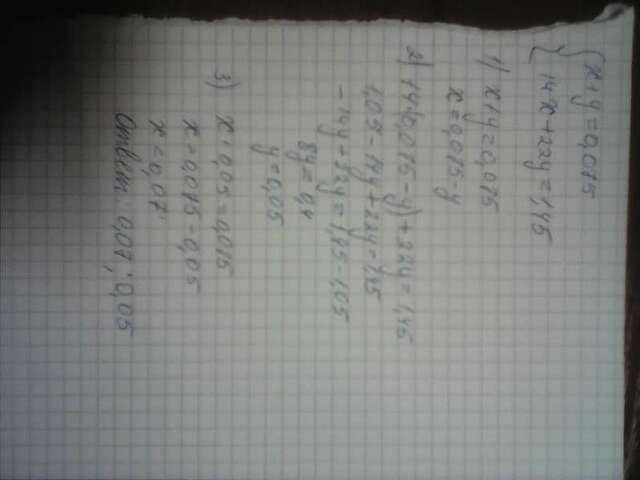 { x+y=0,075
{ 14x+22y=1,45
1) x+y=0,075
x=0,075-y
2) 14·(0,075-y)+22y=1,45
1,05-14y+22y=1,45
-14y+22y=1,45-1,05
8y=0,4
y=0,05
3) x+0,05=0,075
x=0,075-0,05
x=0,07
Ответ: 0,07; 0,05